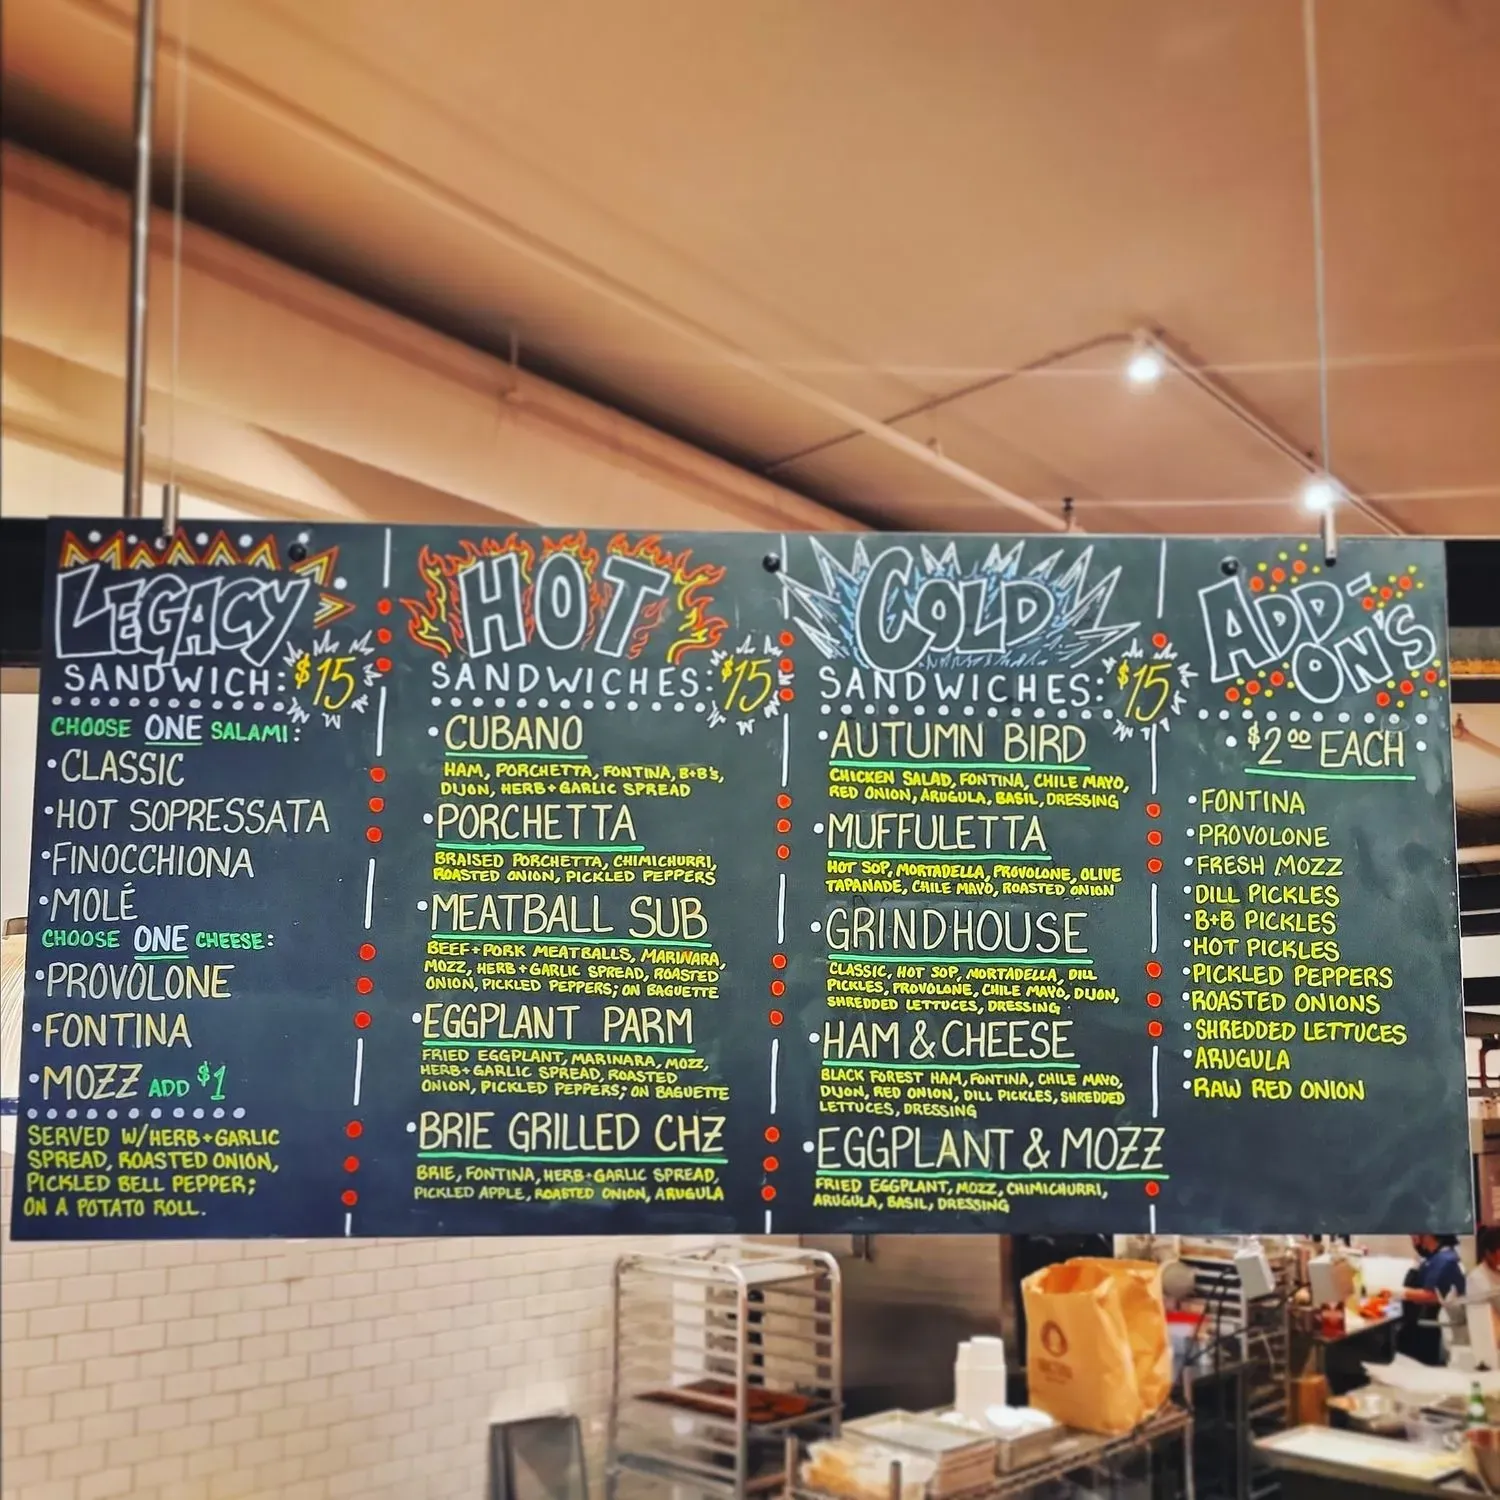 LEGACY
SANDWICH: $15
CHOOSE ONE SALAMI:
• CLASSIC
• HOT SOPRESSATA
• FINOCCHIONA
• MOLÉ
CHOOSE ONE CHEESE:
• PROVOLONE
• FONTINA
• MOZZ ADD $1
SERVED W/HERB+GARLIC
SPREAD, ROASTED ONION,
PICKLED BELL PEPPER;
ON A POTATO ROLL.
HOT
SANDWICHES: $15
• CUBANO
HAM, PORCHETTA, FONTINA, B+B's,
DIJON, HERB+GARLIC SPREAD
• PORCHETTA
BRAISED PORCHETTA, CHIMICHURRI,
ROASTED ONION, PICKLED PEPPERS
• MEATBALL SUB
BEEF+PORK MEATBALLS, MARINARA,
MOZZ, HERB+GARLIC SPREAD, ROASTED
ONION, PICKLED PEPPERS; ON BAGUETTE
• EGGPLANT PARM
FRIED EGGPLANT, MARINARA, MOZZ,
HERB+GARLIC SPREAD, ROASTED
ONION, PICKLED PEPPERS; ON BAGUETTE
• BRIE GRILLED CHZ
BRIE, FONTINA, HERB+GARLIC SPREAD,
PICKLED APPLE, ROASTED ONION, ARUGULA
COLD
SANDWICHES: $15
• AUTUMN BIRD
CHICKEN SALAD, FONTINA, CHILE MAYO,
RED ONION, ARUGULA, BASIL, DRESSING
• MUFFULETTA
HOT SOP, MORTADELLA, PROVOLONE, OLIVE
TAPANADE, CHILE MAYO, ROASTED ONION
• GRINDHOUSE
CLASSIC, HOT SOP, MORTADELLA, DILL
PICKLES, PROVOLONE, CHILE MAYO, DIJON,
SHREDDED LETTUCES, DRESSING
• HAM & CHEESE
BLACK FOREST HAM, FONTINA, CHILE MAYO,
DIJON, RED ONION, DILL PICKLES, SHREDDED
LETTUCES, DRESSING
• EGGPLANT & MOZZ
FRIED EGGPLANT, MOZZ, CHIMICHURRI,
ARUGULA, BASIL, DRESSING
ADD-
ON'S
• $2.00 EACH •
• FONTINA
• PROVOLONE
• FRESH MOZZ
• DILL PICKLES
• B+B PICKLES
• HOT PICKLES
• PICKLED PEPPERS
• ROASTED ONIONS
• SHREDDED LETTUCES
• ARUGULA
• RAW RED ONION